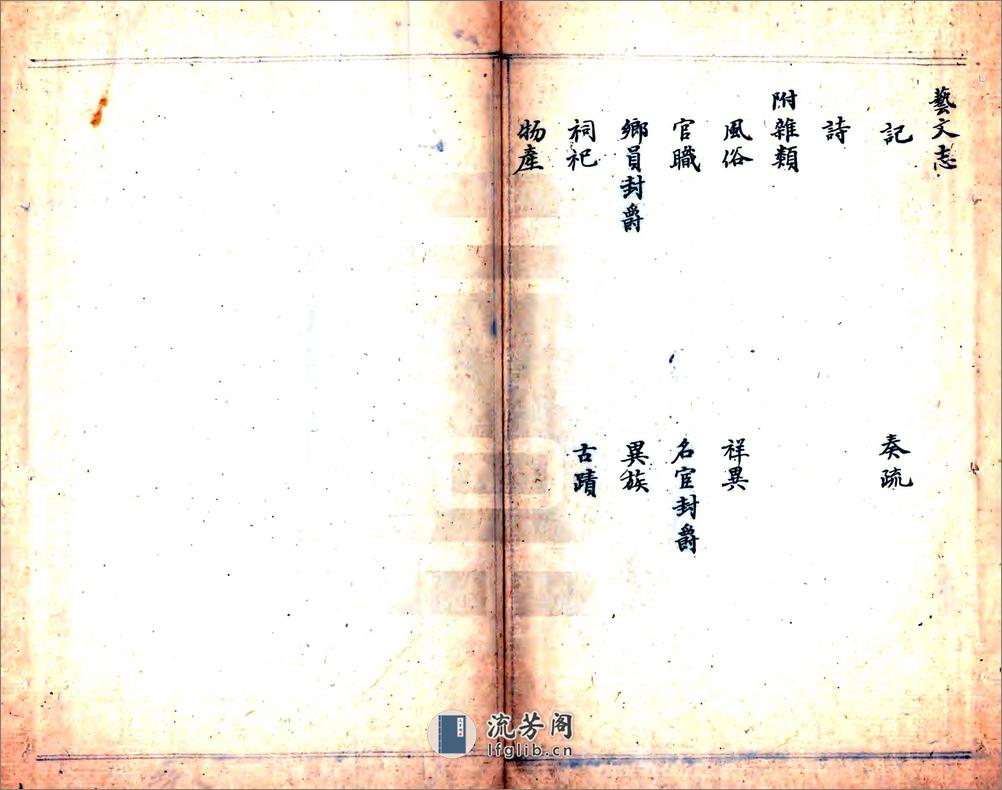 藝文志
記 奏疏
詩
附雜類
風俗 祥異
官職 名宦封爵
鄉員封爵 異族
祠祀 古蹟
物產
流芳阁
lfglib.cn